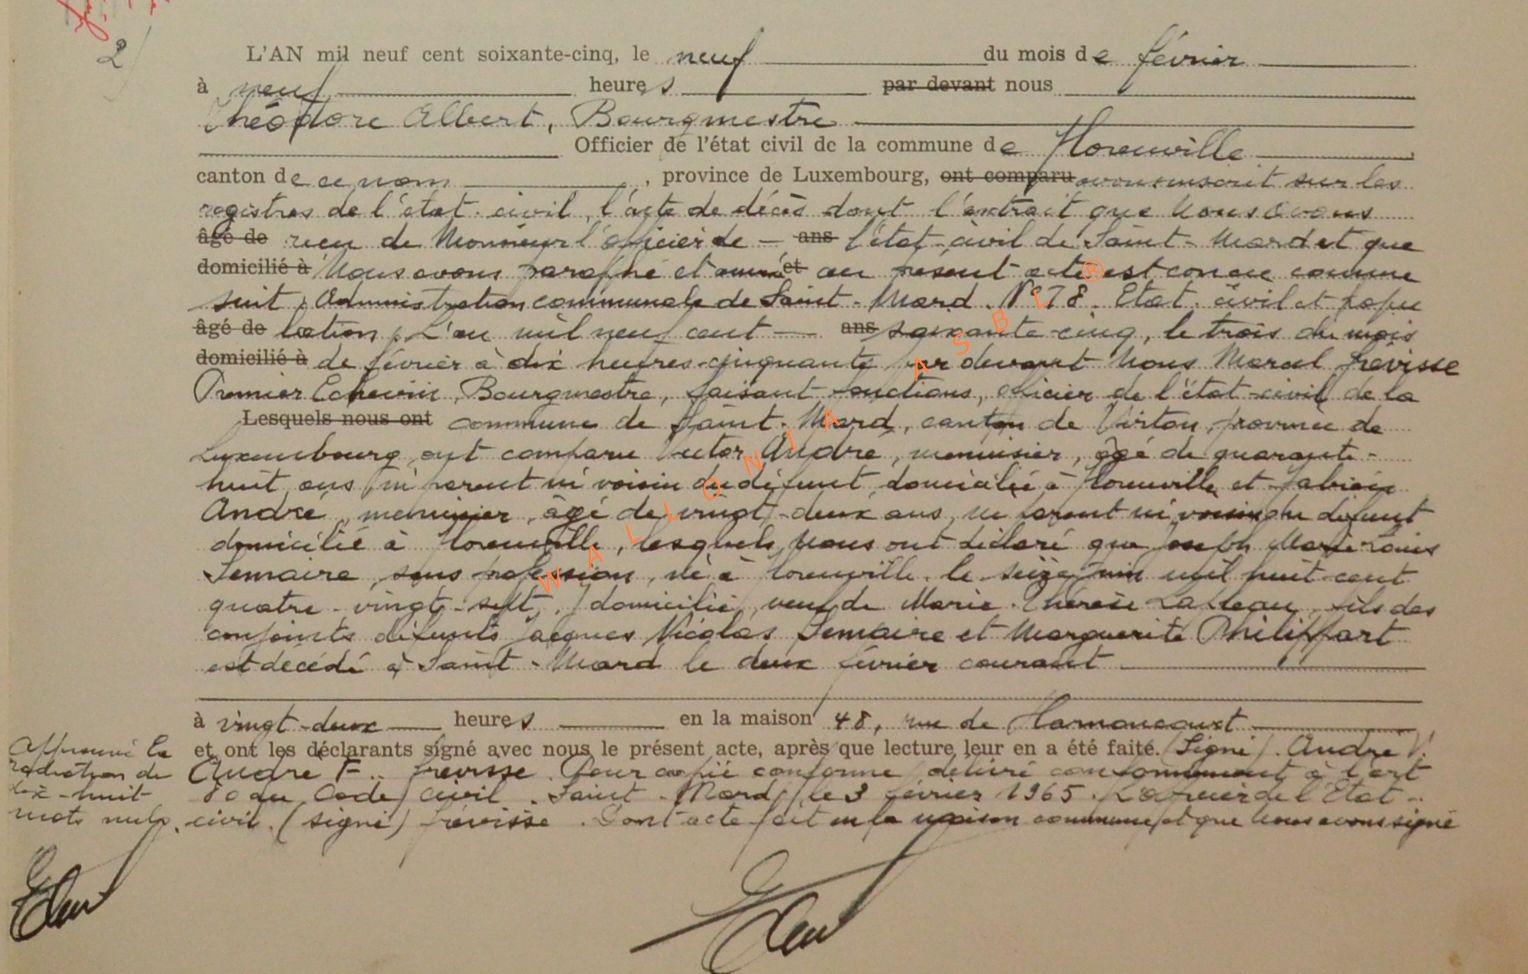 2
L'AN mil neuf cent soixante-cinq, le neuf du mois de février
à neuf heures par devant nous
Théodore Albert, Bourgmestre
Officier de l'état civil de la commune de Florenville
canton de ce nom, province de Luxembourg, ont comparu avons inscrit sur les
registres de l'état-civil, l'acte de décès dont l'extrait que Nous avons
âgé de reçu de Monsieur l'officier de - ans l'état-civil de Saint-Mard et que
domicilié à Nous avons paraphé et annexé et au présent acte est conçu comme
suit: Administration communale de Saint-Mard. N° 78. Etat-civil et popu
âgé de lation. L'an mil neuf cent - ans soixante-cinq, le trois du mois
domicilié à de février à dix heures cinquante par devant Nous Marcel Frevisse
Premier Echevin, Bourgmestre, faisant fonctions, officier de l'état-civil de la
Lesquels nous ont commune de Saint-Mard, canton de Virton, province de
Luxembourg, ont comparu Victor André, menuisier, âgé de quarante-
huit ans, ni parent ni voisin du défunt, domicilié à Florenville et
André, menuisier, âgé de vingt-deux ans, ni parent ni voisin du défunt
domicilié à Florenville, lesquels Nous ont déclaré que Joseph Marie Louis
Lemaire, sans profession, né à Florenville le seize juin mil huit cent
quatre-vingt-sept, y domicilié, veuf de Marie-Thérèse Lapleau, fils des
conjoints défunts Jacques Nicolas Lemaire et Marguerite Philippart
est décédé à Saint-Mard le deux février courant
à vingt-deux heures en la maison 48, rue de Harnoncourt
et ont les déclarants signé avec nous le présent acte, après que lecture leur en a été faite. (Signé). André V.
André F. Frevisse. Pour copie conforme, délivré conformément à l'art
80 du Code civil. Saint-Mard, le 3 février 1965. L'officier de l'Etat-
civil. (signé) Frévisse. Dont acte fait en la maison commune et que Nous avons signé
Approuvé la
radiation de
dix-huit
mots nuls.
WALLONIA ASBL ®